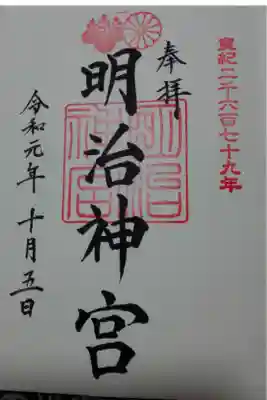 皇紀二千六百七十九年
奉拝
明治神宮
明治神宮
令和元年 十月五日